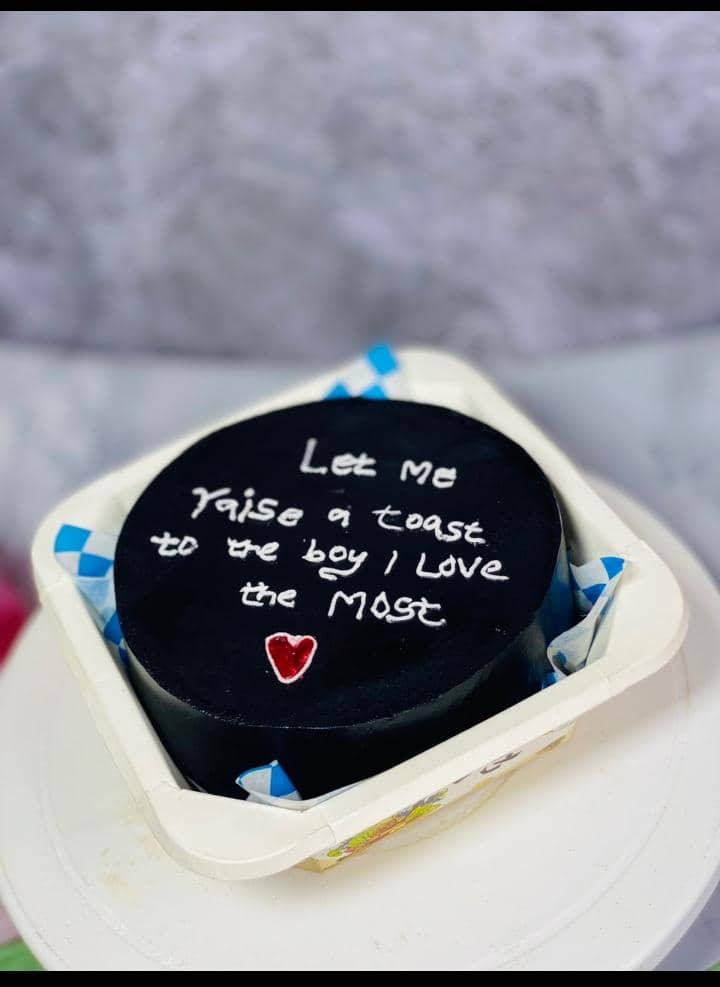 Let Me
raise a toast
to the boy I Love
the MOst